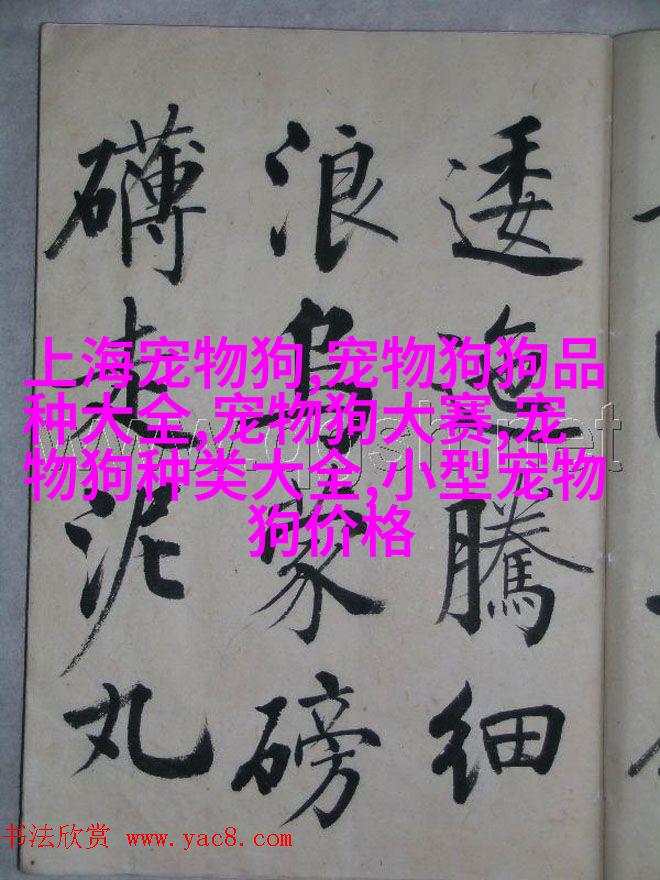 逶迤騰细
浪烏蒙磅
礴走泥丸
上海宠物狗,宠物狗狗品
种大全,宠物狗大赛,宠
物狗种类大全,小型宠物
狗价格
书法欣赏 www.yac8.com